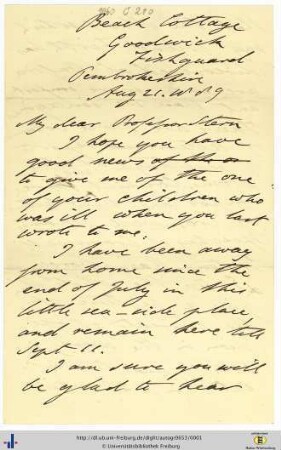 Beach Cottage
Goodwick
Fishguard
Pembrokeshire
Aug 21. 1889
My dear Professor Stern
I hope you have
good news of
to give me of the one
of your children who
was ill when you last
wrote to me.
I have been away
from home since the
end of July in this
little sea-side place
and remain here till
Sept 11.
I am sure you will
be glad to hear
http://dl.ub.uni-freiburg.de/diglit/autog-0653/0001
© Universitätsbibliothek Freiburg